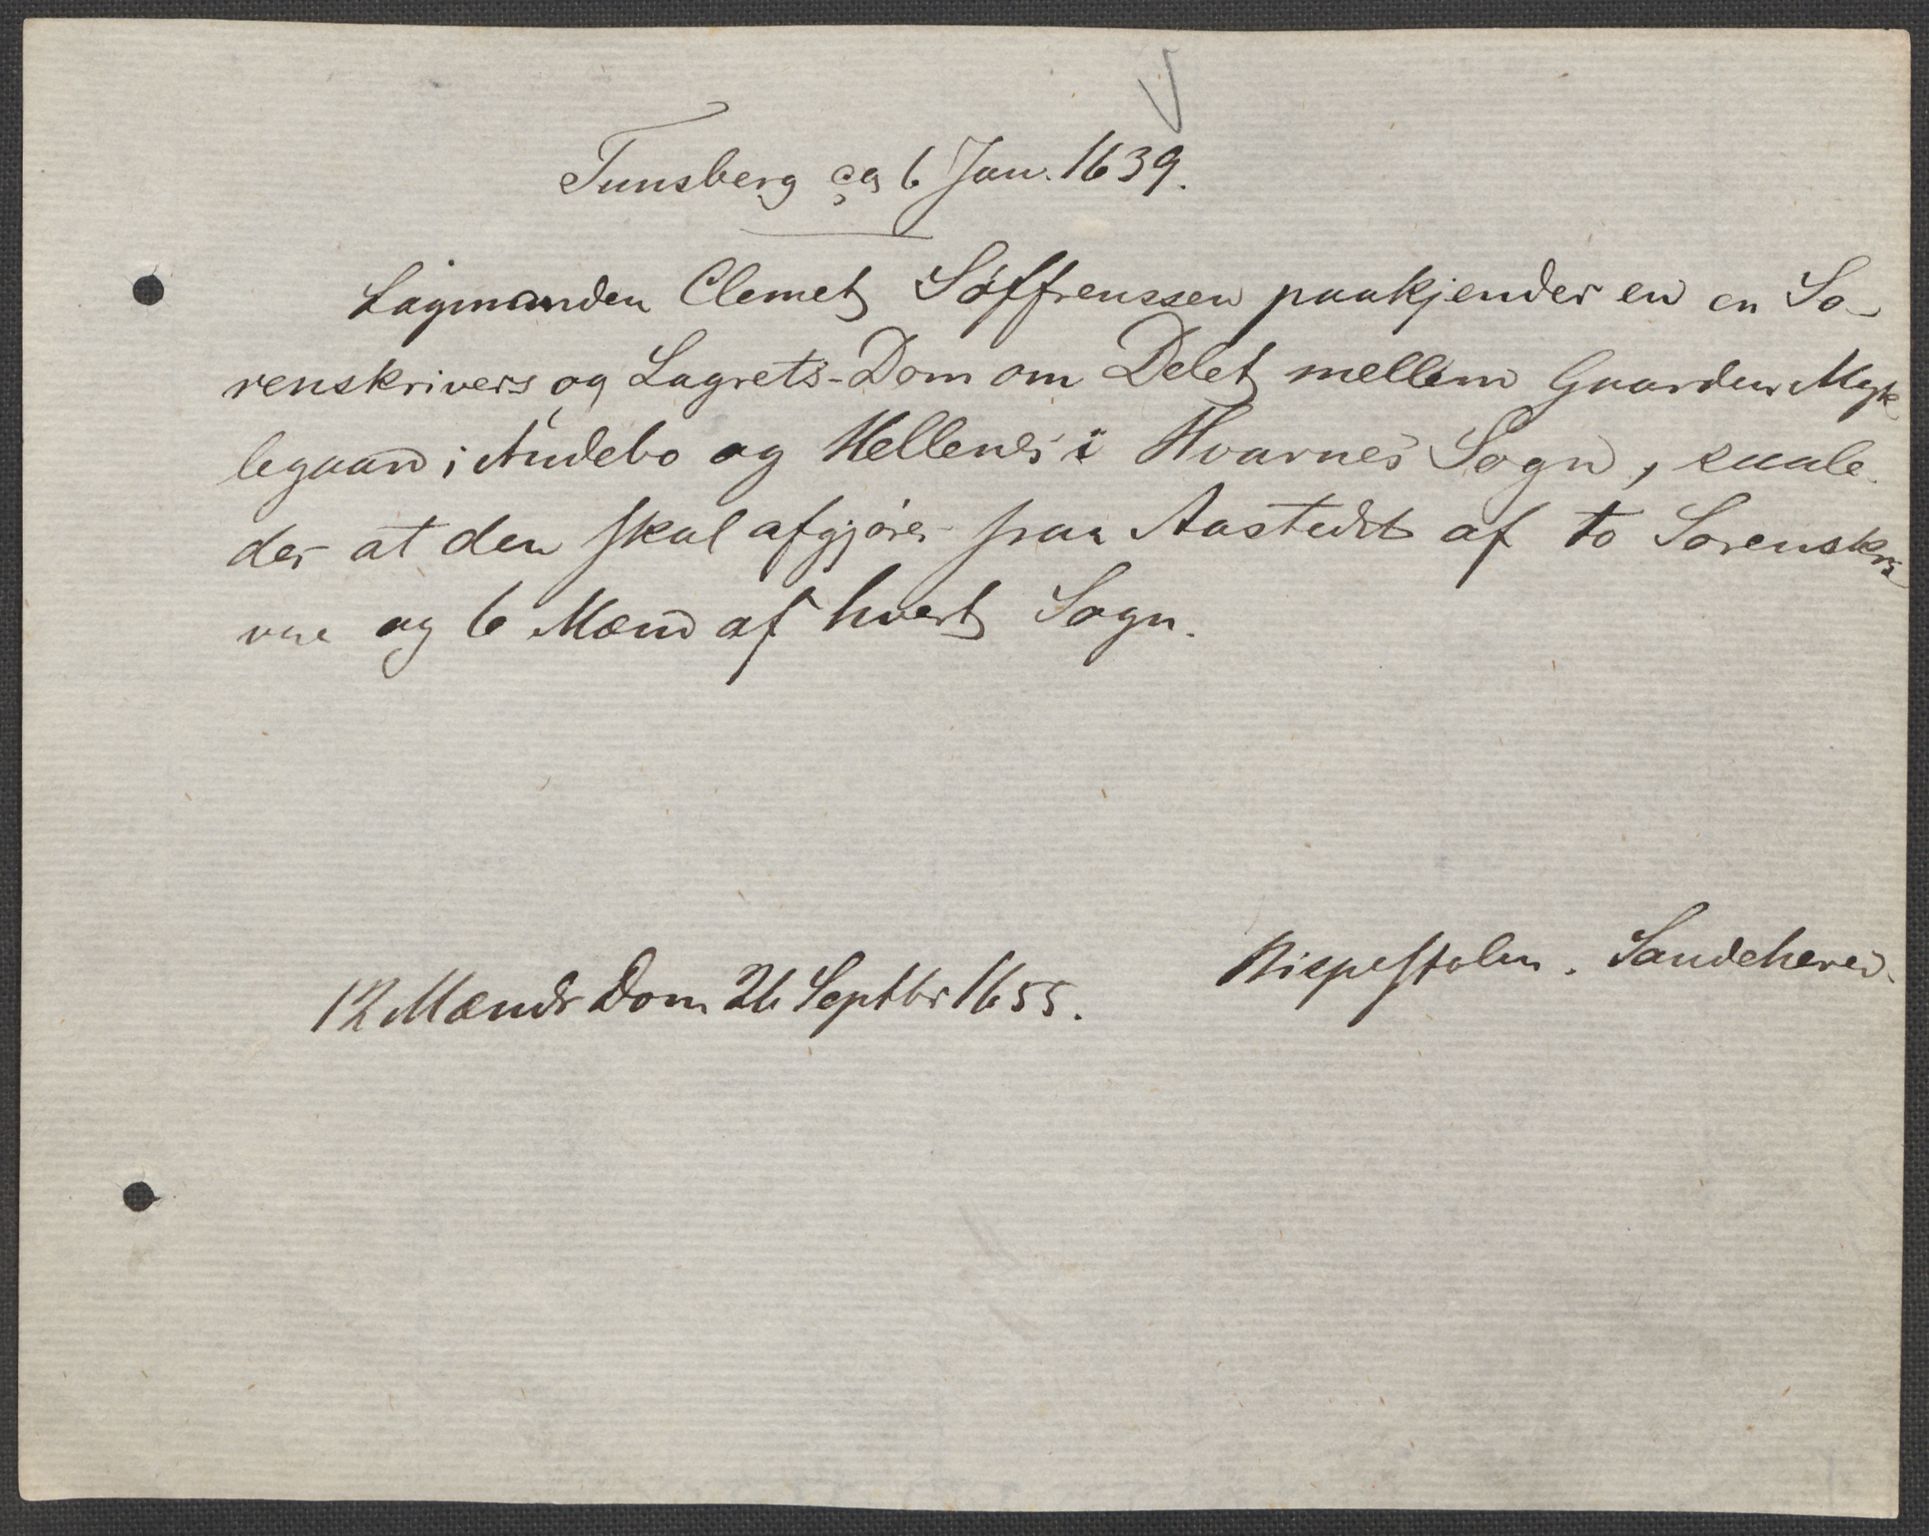 Tunsberg ca 6 Jan. 1639.
Lagmanden Clemet Søffrenssen paakjender en en So-
renskrivers og Lagrets-Dom om Delet mellem Gaarden Myk
legaard i Andebo og Hellenes i Hvarnes Sogn, saale
des at den skal afgjøres paa Aastedet af to Sorenskri
vere og 6 Mænd af hvert Sogn.
Bispestolen. Sandehered.
12 Mænds Dom 26 Septbr 1655.